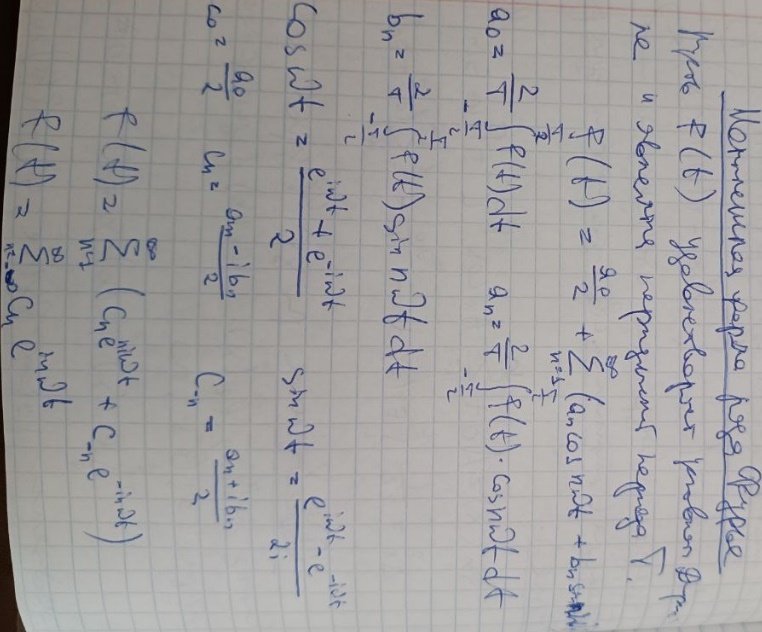 Комплексная форма ряда Фурье
Пусть f(t) удовлетворяет условиям Дири
ле и является периодичной период T.
f(t) = a₀/2 + ∑_{n=1}^{∞} (aₙ cos nωt + bₙ sin nω
a₀ = 2/T ∫_{-T/2}^{T/2} f(t)dt aₙ = 2/T ∫_{-T/2}^{T/2} f(t)·cos nωt dt
bₙ = 2/T ∫_{-T/2}^{T/2} f(t) sin nωt dt
Cos ωt = (e^{iωt} + e^{-iωt})/2 sin ωt = (e^{iωt} - e^{-iωt})/2i
c₀ = a₀/2 cₙ = (aₙ - ibₙ)/2 C₋ₙ = (aₙ + ibₙ)/2
f(t) = ∑_{n=1}^{∞} (Cₙe^{niωt} + C₋ₙe^{-inωt})
f(t) = ∑_{n=-∞}^{∞} Cₙ e^{inωt}